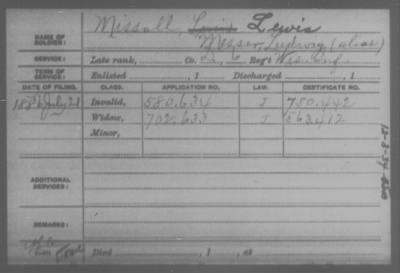 Missall, Louis Lewis
NAME OF SOLDIER:
(alias)
SERVICE: Late rank, Co. Reg't Inf.
TERM OF SERVICE: Enlisted , 1 Discharged , 1
DATE OF FILING. CLASS. APPLICATION NO. LAW. CERTIFICATE NO.
July 28 Invalid, 580.634 J 750.442
Widow, 702.633 J 563.412
Minor,
ADDITIONAL SERVICES:
REMARKS:
Died , 1 , at